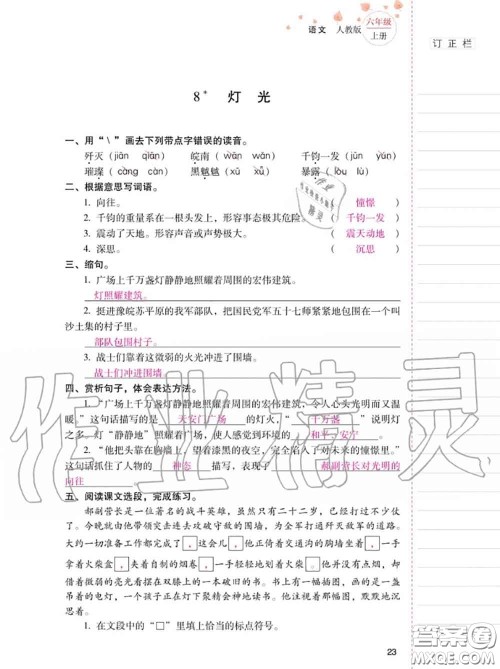 语文 人教版 六年级
上册
订正栏
8* 灯 光
一、用“\”画去下列带点字错误的读音。
歼灭(jiān qiān) 皖南(wǎn wàn) 千钧一发(jūn yún)
璀璨(cǎn càn) 黑魆魆(xū xǔ) 暴露(lòu lù)
二、根据意思写词语。
1. 向往。 (憧憬)
2. 千钧的重量系在一根头发上，形容事态极其危险。 (千钧一发)
3. 震动了天地。形容声音或声势极大。 (震天动地)
4. 深思。 (沉思)
三、缩句。
1. 广场上千万盏灯静静地照耀着周围的宏伟建筑。
灯照耀建筑。
2. 挺进豫皖苏平原的我军部队，把国民党军五十七师紧紧地包围在一个叫
沙土集的村子里。
部队包围村子。
3. 战士们靠着这微弱的火光冲进了围墙。
战士们冲进围墙。
四、赏析句子，体会表达方法。
1. “广场上千万盏灯静静地照耀着周围的宏伟建筑，令人心头感到光明而又温
暖。”这句话描写的是 天安门广场 的灯火，“ 千万盏 ”说明灯
之多。灯“静静地”照耀着广场，使人感觉到环境的 和平、安宁 。
2. “他把头靠在胸墙上，望着漆黑的夜空，完全陷入了对未来的憧憬里。”
这句话抓住了人物的 神态 描写，表现了 郝副营长对光明的
向往 。
五、阅读课文选段，完成练习。
郝副营长是一位著名的战斗英雄，虽然只有二十二岁，已经打过不少仗
了。今晚就由他带领突击连去攻破守敌的围墙，为全军打通歼灭敌军的道路。
大约一切准备工作都完成了，这会儿，他正倚着交通沟的胸墙坐着，一手
拿着火柴盒，夹着自制的烟卷，一手轻轻地划着火柴。他并没有点烟，却
借着微弱的亮光看摆在双膝上的一本破旧的书。书上有一幅插图，画的是一盏
吊着的电灯，一个孩子正在灯下聚精会神地读书。他注视着那幅图，默默地沉
思着。
1. 在文段中的“□”里填上恰当的标点符号。
23
作业精灵